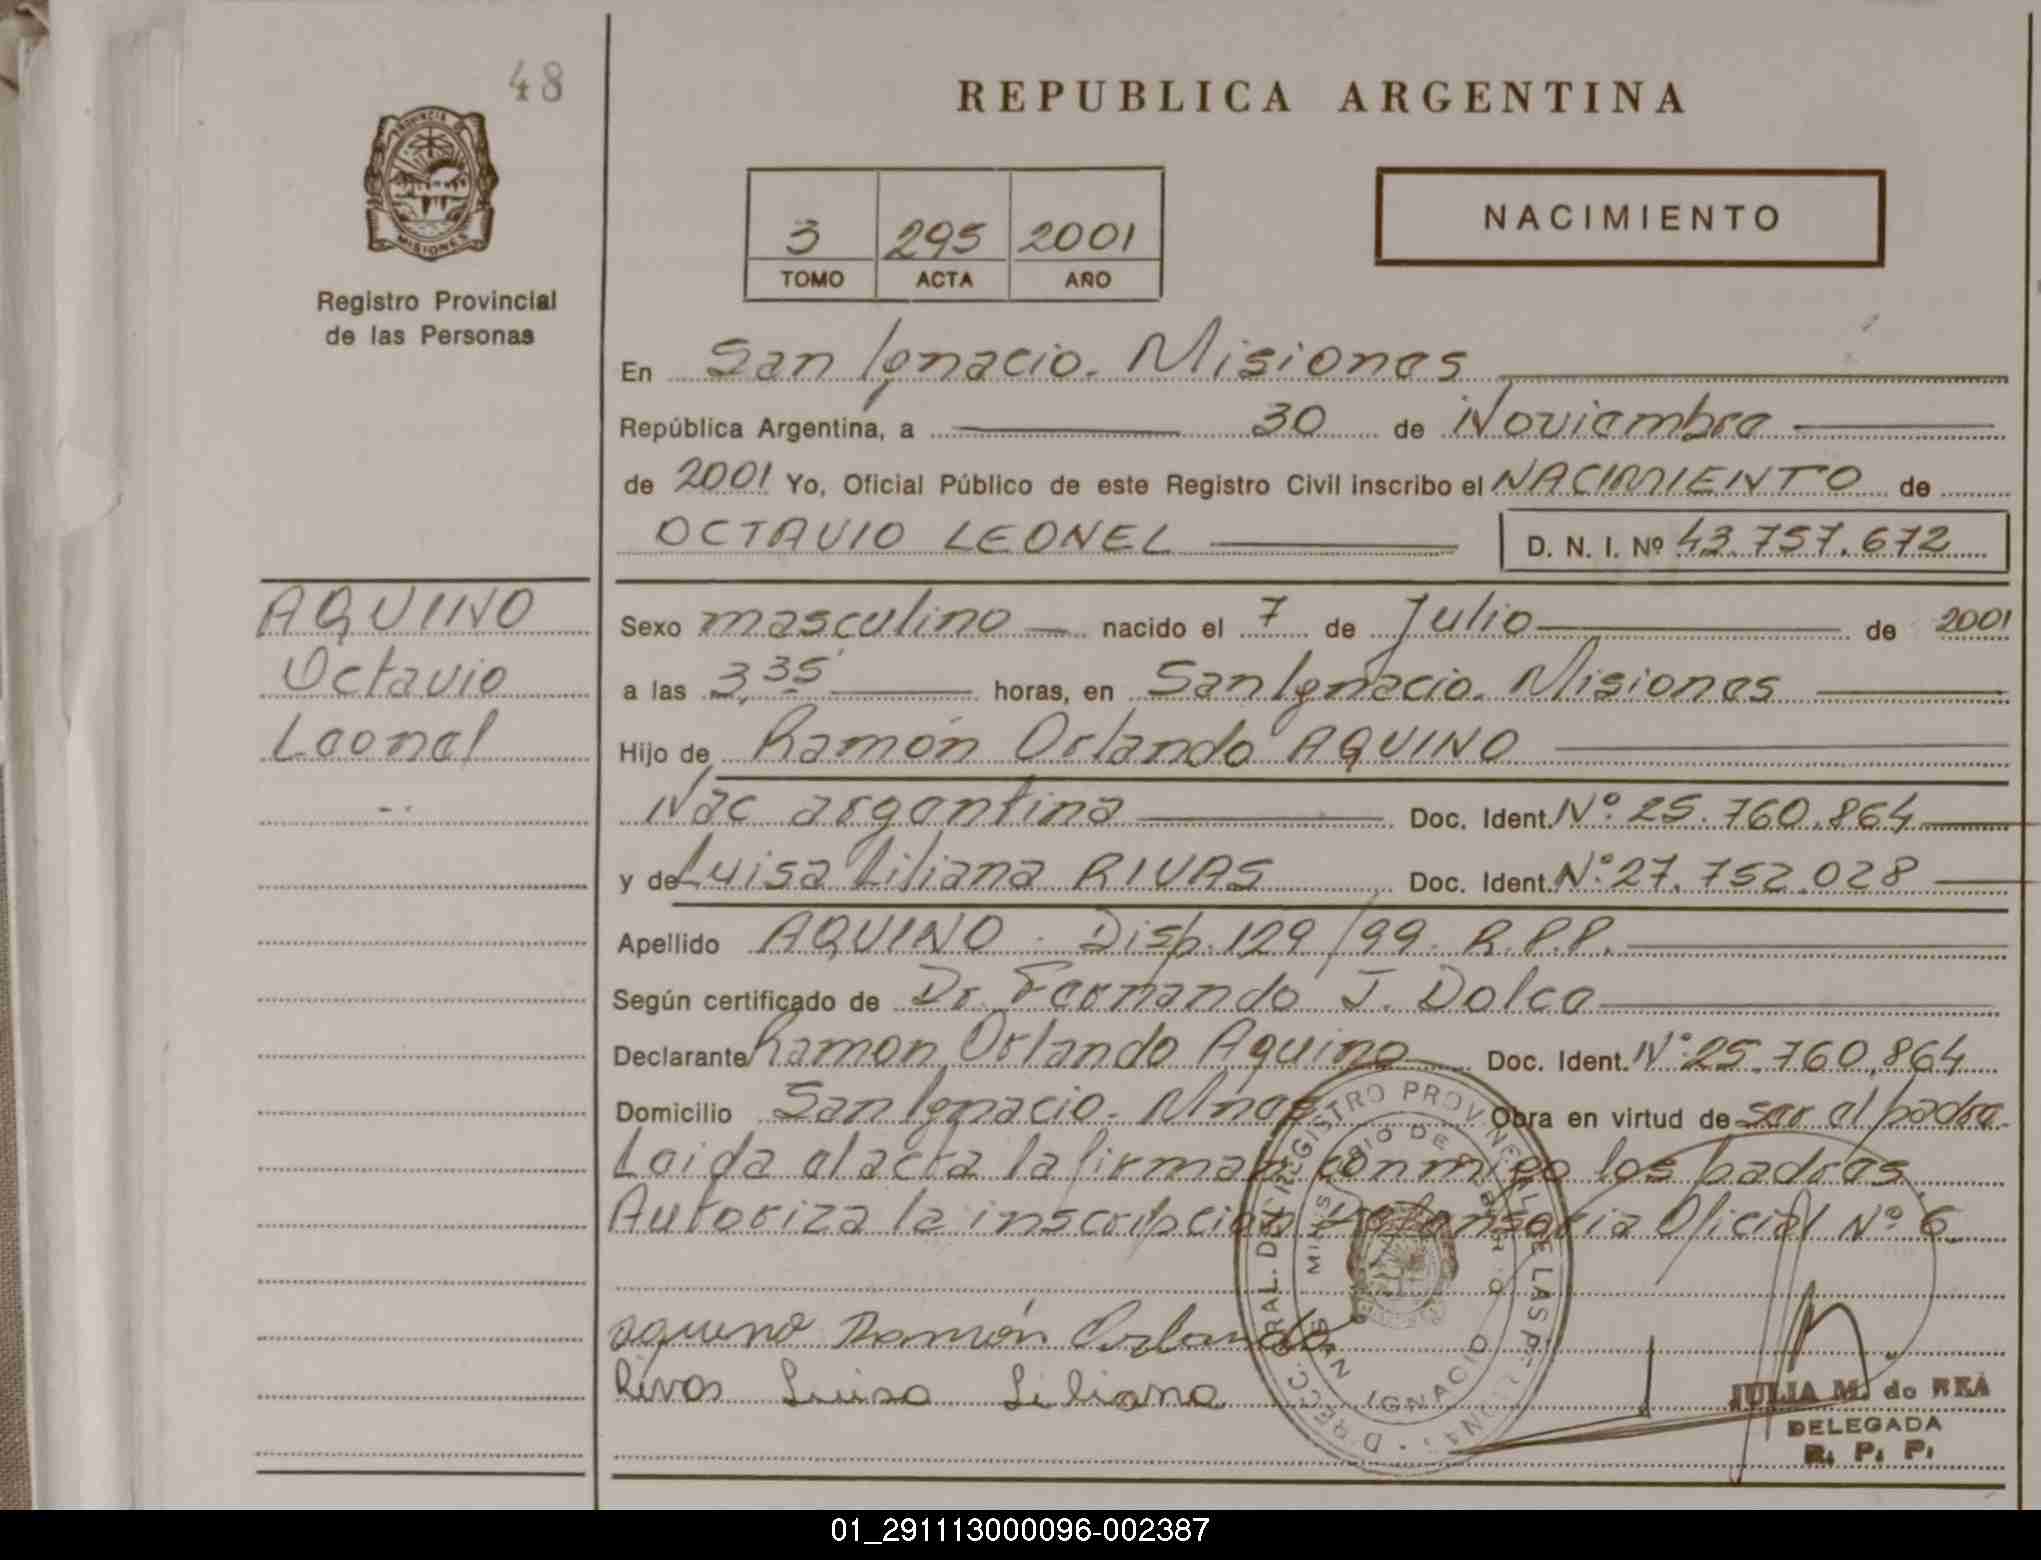 48
REPUBLICA ARGENTINA
PROVINCIA DE
MISIONES
Registro Provincial
de las Personas
3 295 2001
TOMO ACTA AÑO
NACIMIENTO
En San Ignacio. Misiones
República Argentina, a 30 de Noviembre
de 2001 Yo, Oficial Público de este Registro Civil inscribo el NACIMIENTO de
OCTAVIO LEONEL D. N. I. Nº 43.757.672
AQUINO
Octavio
Leonel
Sexo masculino nacido el 7 de Julio de 2001
a las 3,35 horas, en San Ignacio. Misiones
Hijo de Ramón Orlando AQUINO
Nac argentina Doc. Ident. Nº 25.760.864
y de Luisa Liliana RIVAS Doc. Ident. Nº 27.752.028
Apellido AQUINO. Disp. 129/99. R.P.P.
Según certificado de Dr. Fernando J. Dolce
Declarante Ramon Orlando Aquino Doc. Ident. Nº 25.760.864
Domicilio San Ignacio. Mnes Obra en virtud de ser el padre
Leida el acta la firman conmigo los padres.
Autoriza la inscripcion Defensoria Oficial Nº 6
Aquino Ramón Orlando
Rivas Luisa Liliana
JULIA M. de REA
DELEGADA
R. P. P.
01_291113000096-002387